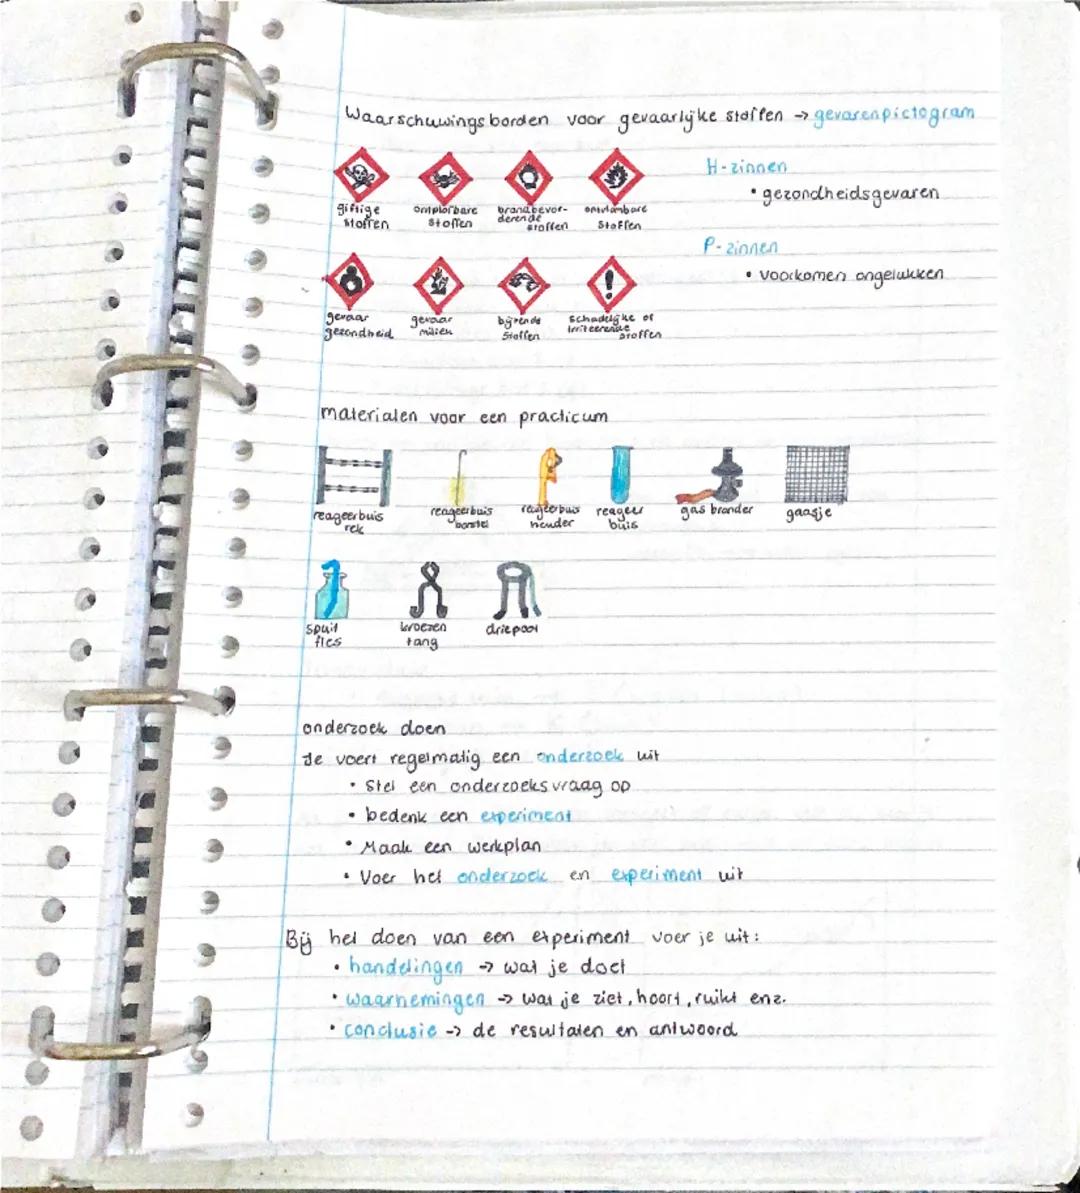 Waarschuwingsborden voor gevaarlijke stoffen → gevarenpictogram
H-zinnen
• gezondheidsgevaren
P-zinnen
• voorkomen ongelukken
giftige stoffen
ontplofbare stoffen
brandbevor-
derende stoffen
ontvlambare stoffen
gevaar gezondheid
gevaar milieu
bijtende stoffen
schadelijke of irriteerende stoffen
materialen voor een practicum
reageerbuis rek
reageerbuis borstel
reageerbuis houder
reageer buis
gas brander
gaasje
spuit fles
kroezen tang
driepoot
onderzoek doen
Je voert regelmatig een onderzoek uit
• Stel een onderzoeksvraag op
• bedenk een experiment
• Maak een werkplan
• Voer het onderzoek en experiment uit
Bij het doen van een experiment voer je uit:
• handelingen → wat je doet
• waarnemingen → wat je ziet, hoort, ruikt enz.
• conclusie → de resultaten en antwoord